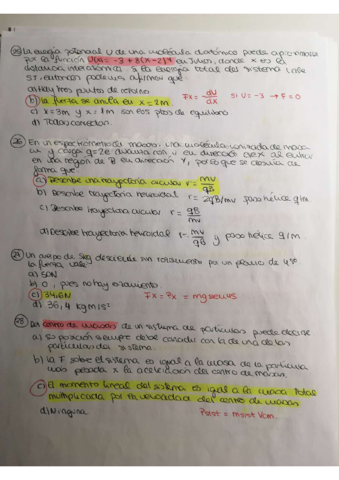 25) La energía potencial U de una molécula diatómica puede aproximarse
por la función U(x) = -3 + 8(x-2)⁴ en Julios, donde x es la
distancia interatómica. Si la energía total del sistema vale
5J, entonces podemos afirmar que:
a) Hay tres puntos de retorno
b) la fuerza se anula en x = 2m
Fx = dU/dx Si U = -3 → F = 0
c) x = 3m y x = 1m son los ptos de equilibrio
d) Todas correctas.
26) En un espectrómetro de masas, una molécula ionizada de masa
m y carga q = 2e en dirección eje X al entrar
en una región de B en dirección Y, por lo que se desvía de
forma que:
a) Describe una trayectoria circular r = mv/qB
b) Describe trayectoria helicoidal r = 2qB/mv paso hélice q/m
c) Describe trayectoria circular r = qB/mv
d) Describe trayectoria helicoidal r = mv/qB y paso hélice q/m
27) Un cuerpo de 5kg desciende sin rozamiento por un plano de 45º
la fuerza vale:
a) 50N
b) 0, pues no hay rozamiento
c) 34.6N Fx = Px = mg sen45
d) 36,4 kgm/s²
28) Del centro de masas de un sistema de partículas puede decirse
a) su posición siempre debe coincidir con la de una de las
partículas del sistema.
b) la F sobre el sistema es igual a la masa de la partícula
más pesada x la aceleración del centro de masas.
c) El momento lineal del sistema es igual a la masa total
multiplicada por la velocidad del centro de masas
d) Ninguna. Psist = msist Vcm.